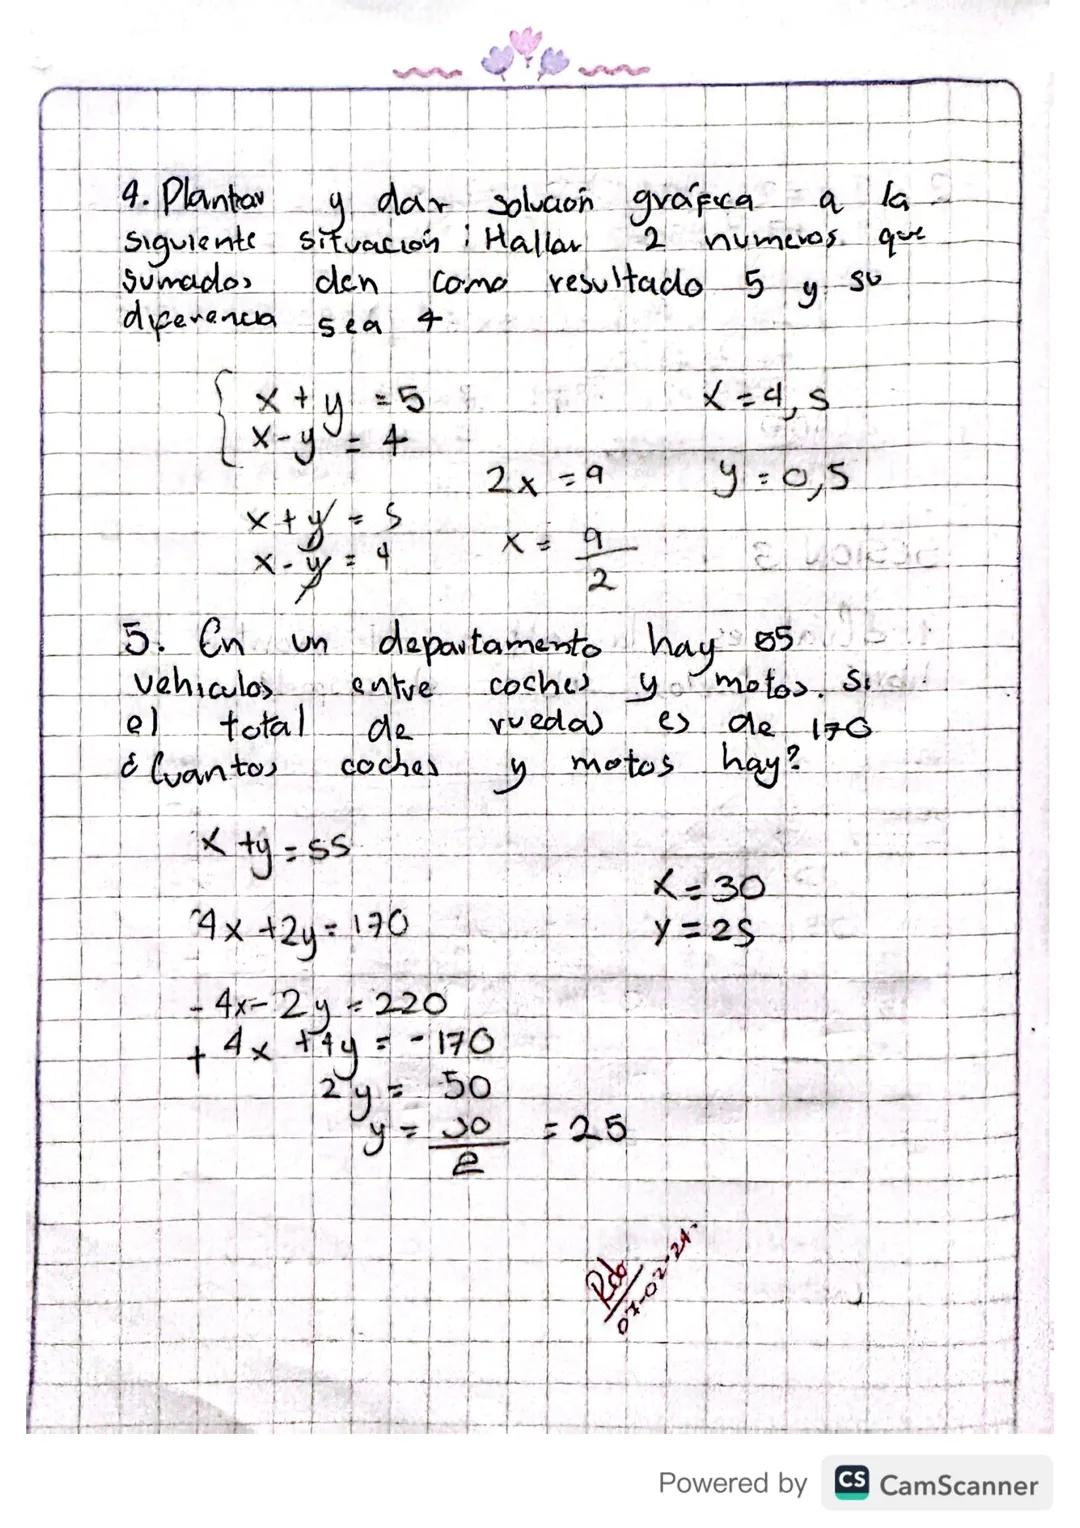 4. Plantar y dar solución gráfica a la
siguiente situación: Hallar 2 numeros que
sumados den como resultado 5 y su
diferencia sea 4
x + y = 5
x - y = 4
x = 4,5
2x = 9
y = 0,5
x + y = 5
x - y = 4
x = 9/2
5. En un departamento hay 55
vehiculos entre coches y motos. Si
el total de ruedas es de 170
¿Cuantos coches y motos hay?
x + y = 55
x = 30
4x + 2y = 170
y = 25
- 4x - 2y = 220
+ 4x + 4y = - 170
2y = 50
y = 50/2 = 25
07-02-24.
Powered by CS CamScanner